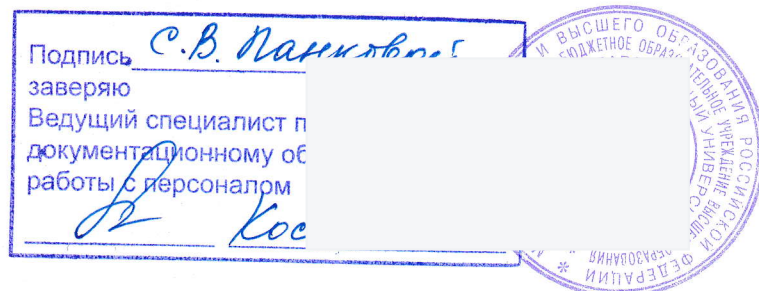 Подпись С.В. Панковой
заверяю
Ведущий специалист п
документационному об
работы с персоналом
Кос
И ВЫСШЕГО ОБРАЗОВАНИЯ РОССИЙСКОЙ ФЕДЕРАЦИИ *
БЮДЖЕТНОЕ ОБРАЗОВАТЕЛЬНОЕ УЧРЕЖДЕНИЕ ВЫСШЕ
ОБРАЗОВАНИЯ
ЫЙ УНИВЕРС